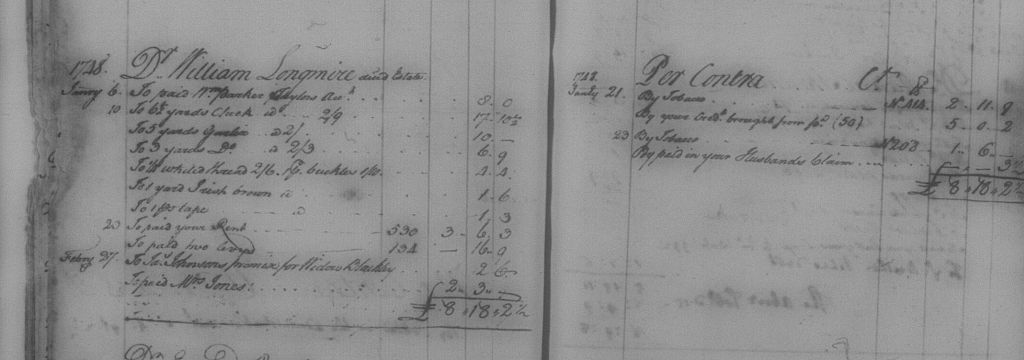 1748. Dr. William Longmire decd Estate
Janry 6. To paid Wm Barker Taylors Acct 8. 0
10 To 6½ yards Clock a do 2/9 17. 10½
To 5 yards a 2/ 10. —
To 3 yards Do a 2/3 6. 9
To whited thread 2/6. buckles 1/10. 4
To 1 yard Irish brown a 1. 6
To 1 ps tape a 1. 3
23 To paid your Rent 530 3. 6. 3
To paid two Levys 134 — 16. 9
Febry 27. To Jas Johnsons promise for Widow Blackley 2. 6
To paid Mrs Jones: 2. 3. —
£ 8. 18. 2½
1748. Per Contra Cr. 8
Janry 21. By Tobacco No. 414. 2. 11. 9
By your Credt brought from fo. (50) 5. 0. 2
23 By Tobacco No 203 1. 6. —
By paid in your Husbands Claim — 3½
£ 8. 18. 2½